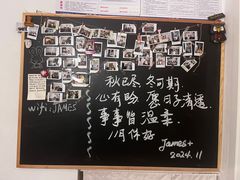 秋已尽 冬可期
心有助 愿日子清透
事事皆温柔
11月你好
James+
2024.11
wifi:JAMES